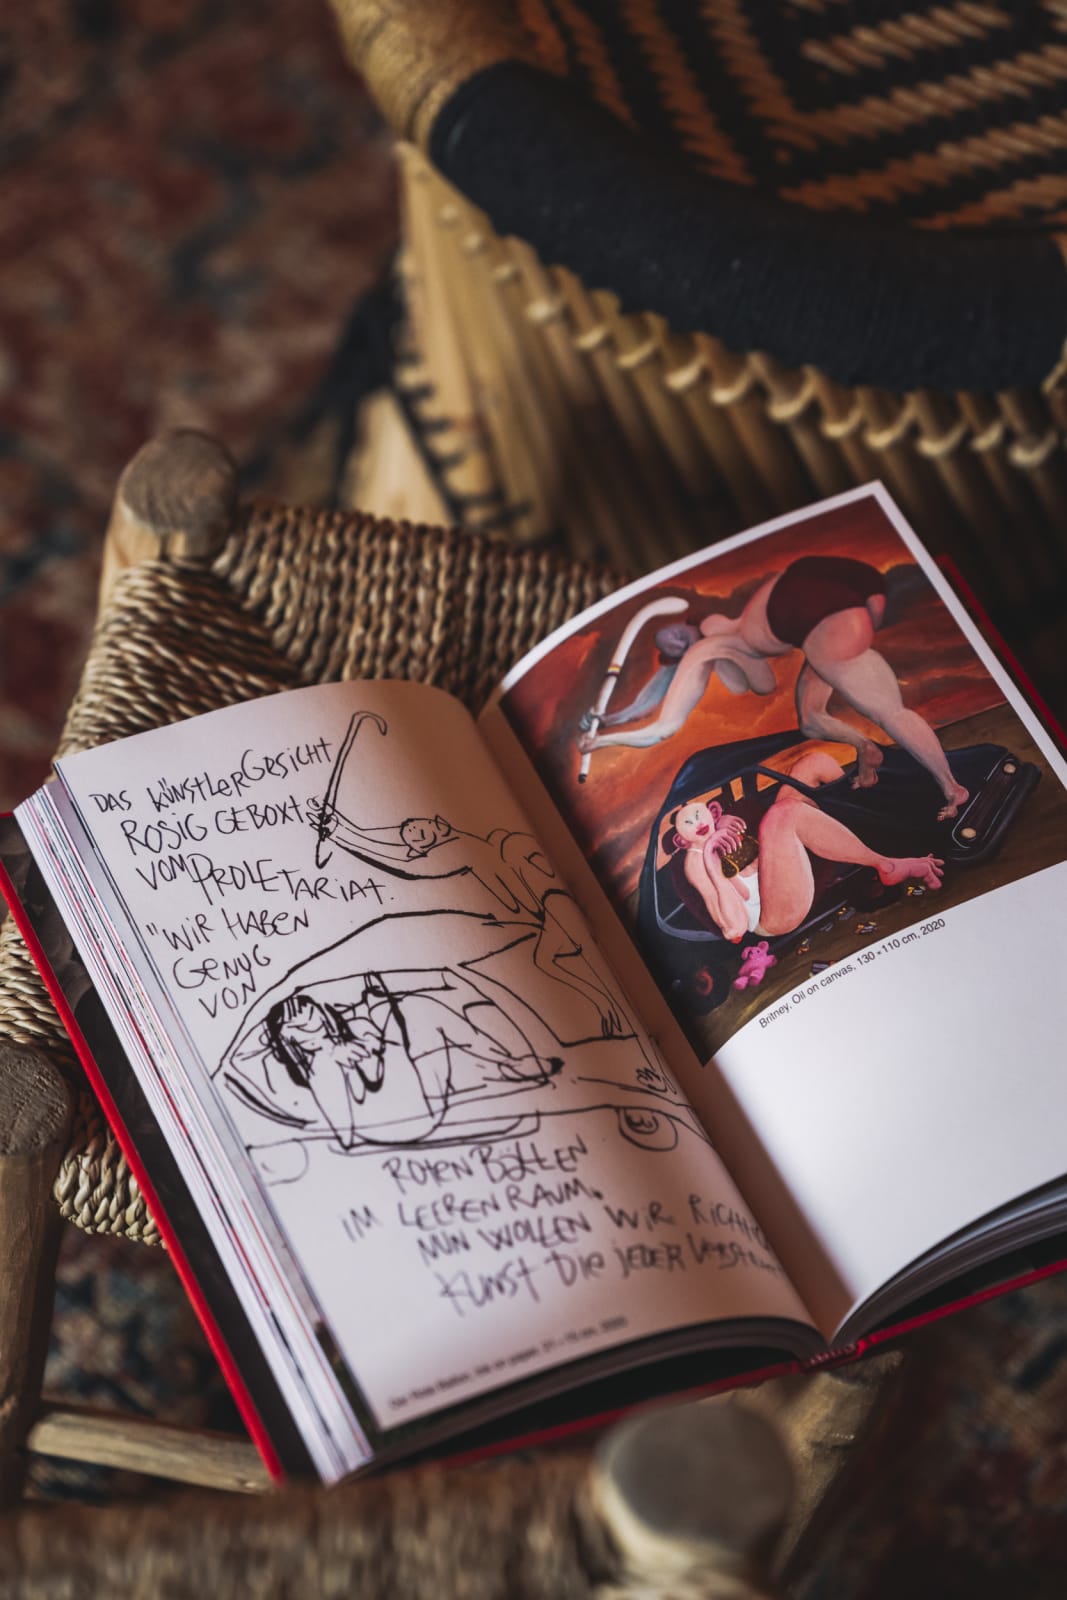 DAS KÜNSTLERGESICHT
ROSIG GEBOXT
VOM PROLETARIAT.
"WIR HABEN
GENUG
VON
ROTEN BÄLLEN
IM LEEREN RAUM.
NUN WOLLEN WIR RICHTIGE
KUNST DIE JEDER
Der Rote Ballon, Ink on paper, 21 × 15 cm, 2020
Britney, Oil on canvas, 130 × 110 cm, 2020